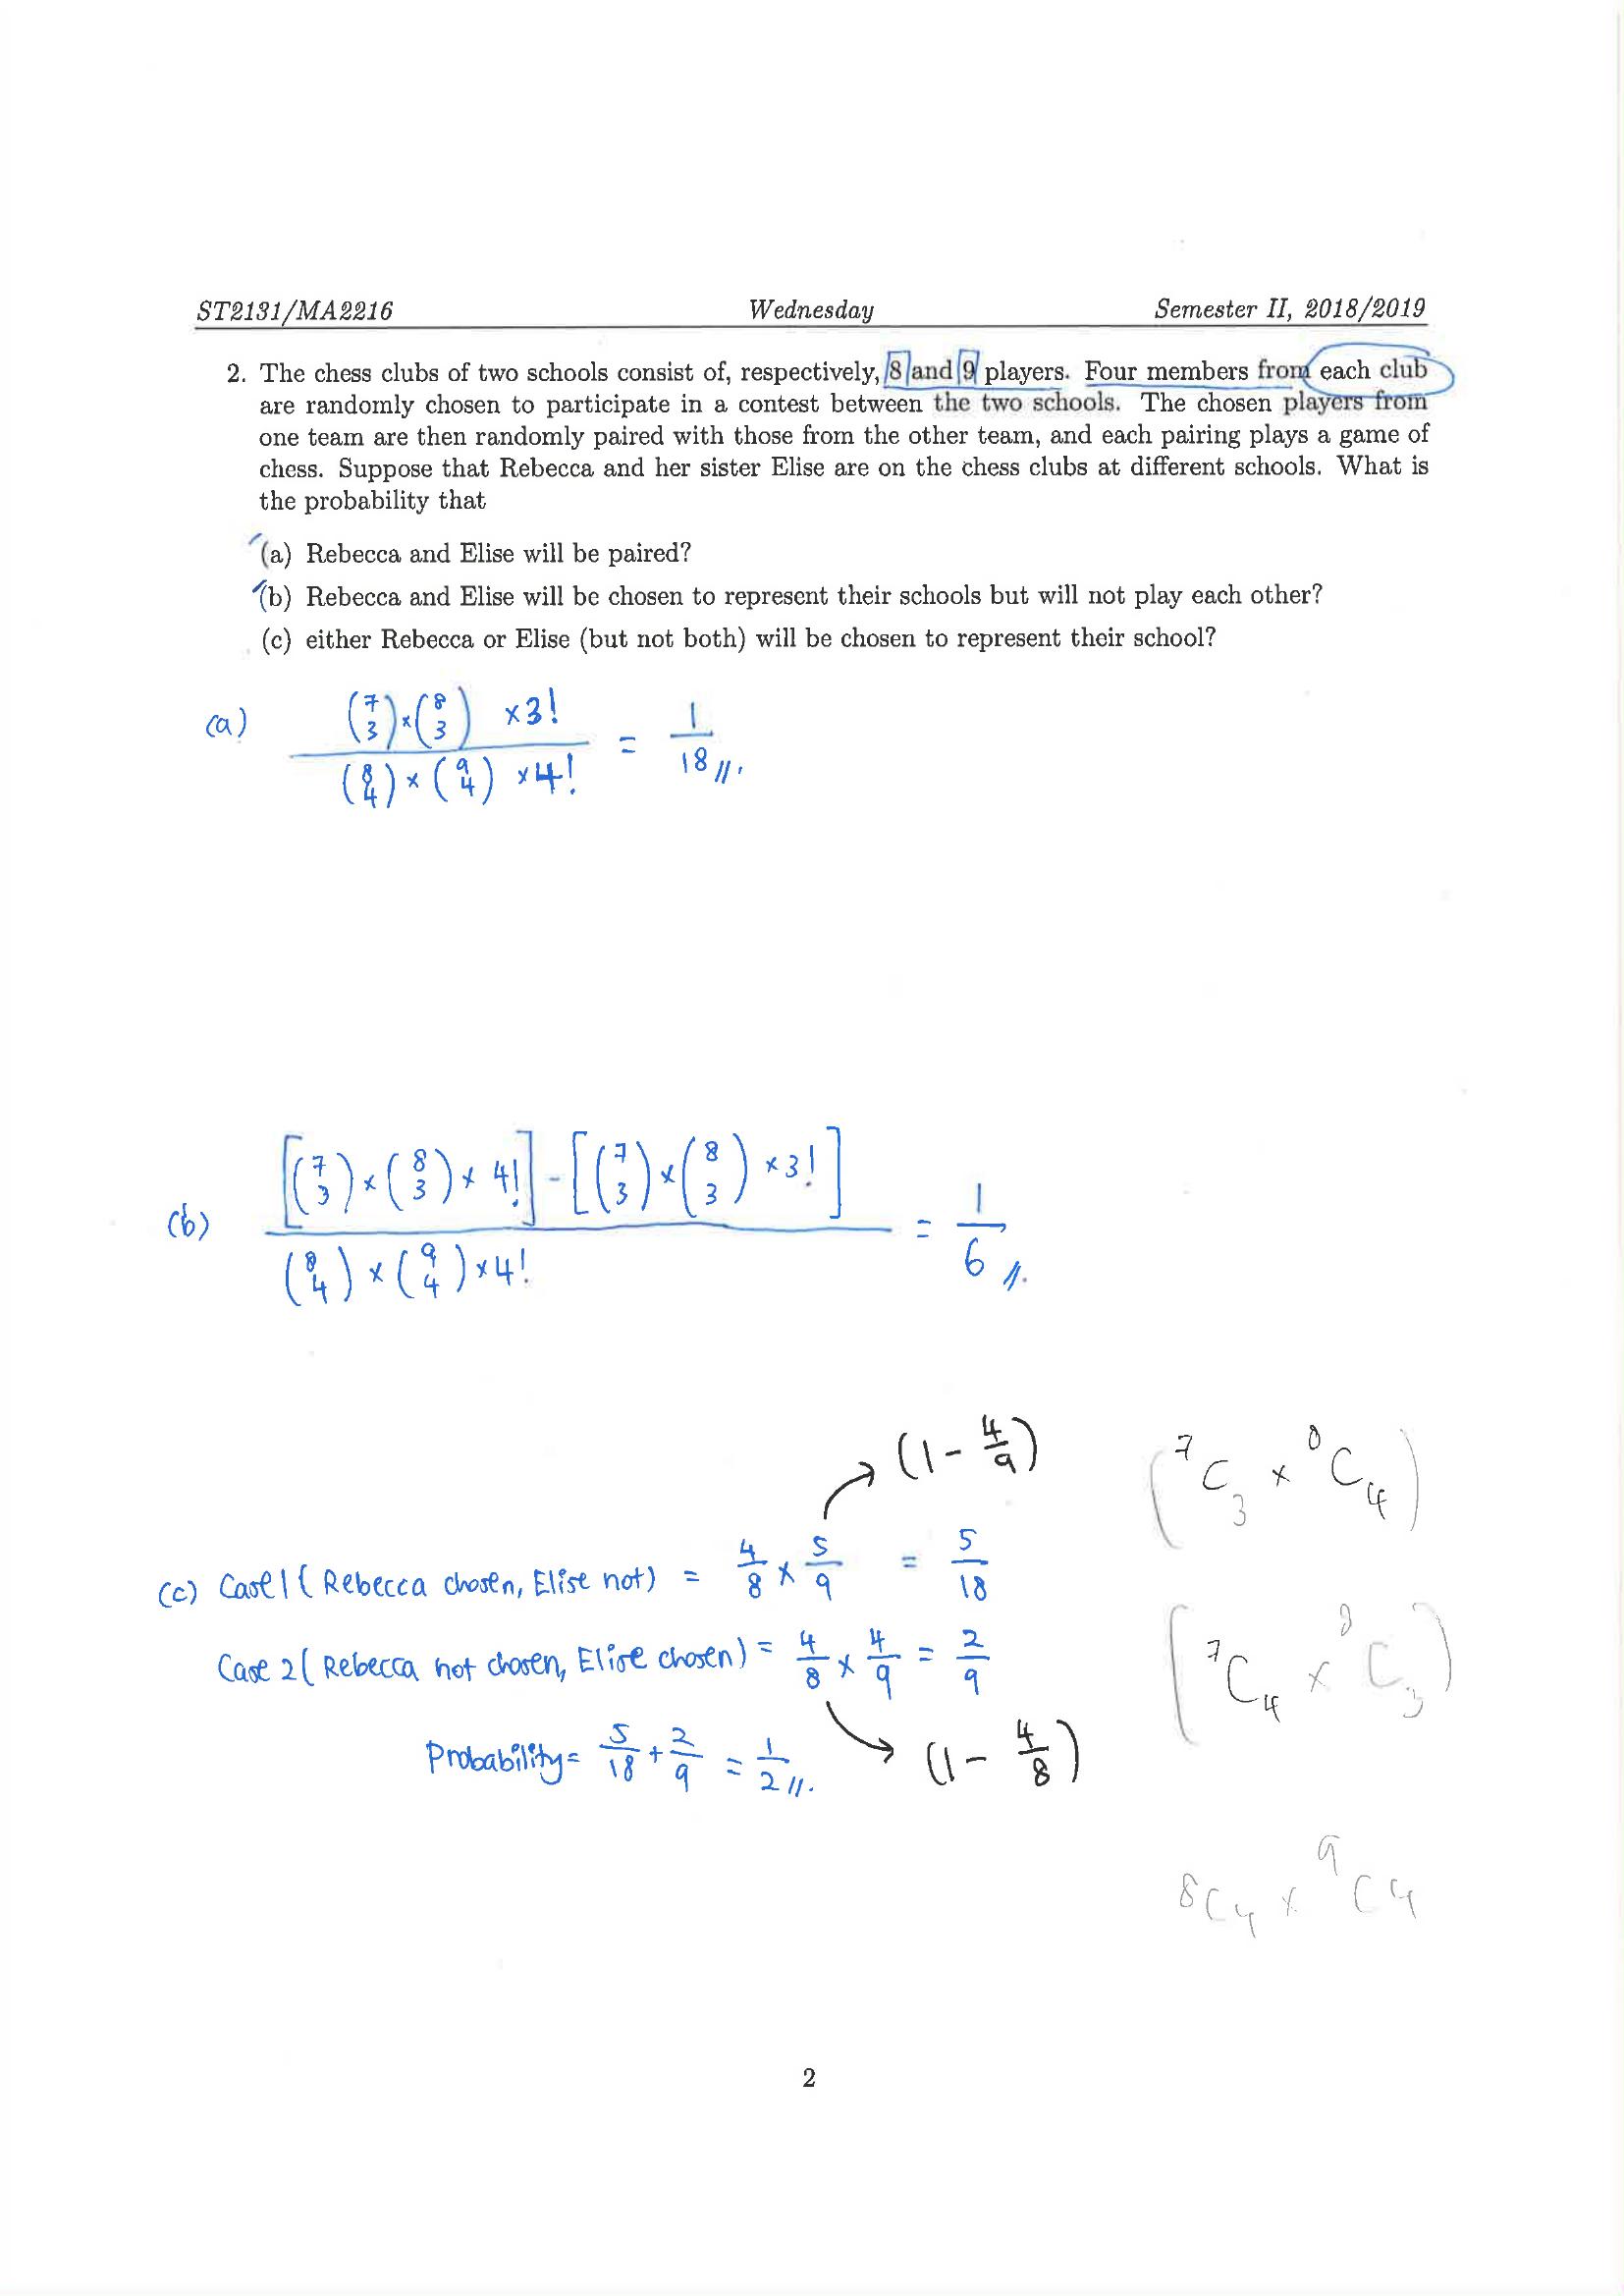 ST2131/MA2216 Wednesday Semester II, 2018/2019
2. The chess clubs of two schools consist of, respectively, 8 and 9 players. Four members from each club
are randomly chosen to participate in a contest between the two schools. The chosen players from
one team are then randomly paired with those from the other team, and each pairing plays a game of
chess. Suppose that Rebecca and her sister Elise are on the chess clubs at different schools. What is
the probability that
(a) Rebecca and Elise will be paired?
(b) Rebecca and Elise will be chosen to represent their schools but will not play each other?
(c) either Rebecca or Elise (but not both) will be chosen to represent their school?
(a) (7 3) × (8 3) × 3! / (8 4) × (9 4) × 4! = 1/18 //.
(b) [(7 3) × (8 3) × 4!] - [(7 3) × (8 3) × 3!] / (8 4) × (9 4) × 4! = 1/6 //.
→ (1 - 4/9)
(7C3 × 8C4)
(c) Case 1 (Rebecca chosen, Elise not) = 4/8 × 5/9 = 5/18
Case 2 (Rebecca not chosen, Elise chosen) = 4/8 × 4/9 = 2/9
(7C4 × 8C3)
Probability = 5/18 + 2/9 = 1/2 //.
→ (1 - 4/8)
8C4 × 9C4
2